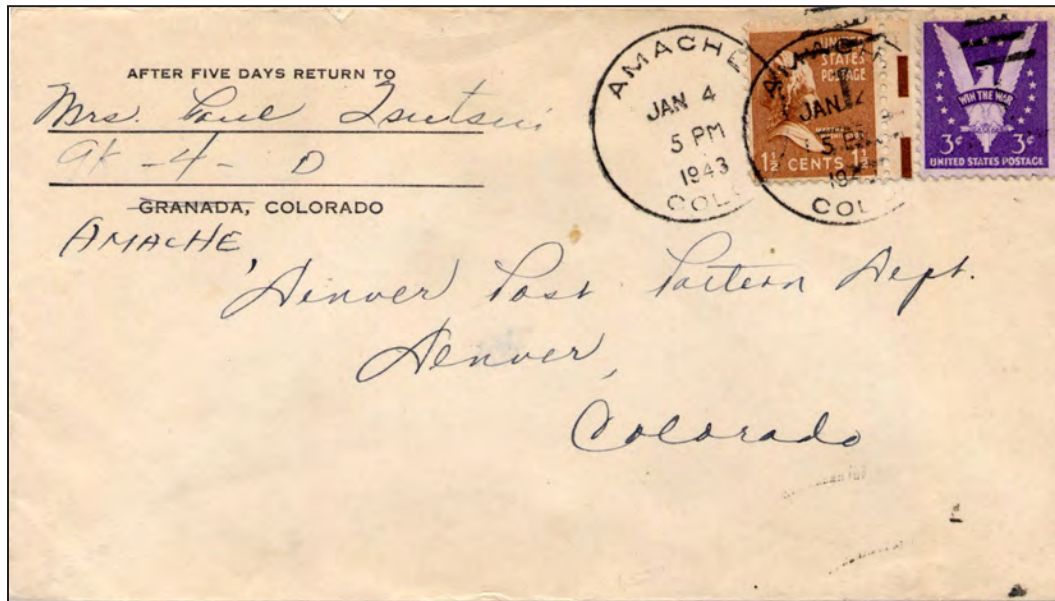 AFTER FIVE DAYS RETURN TO
Mrs. Paul Tsutsui
9K - 4 - D
GRANADA, COLORADO
AMACHE,
AMACHE
JAN 4
5 PM
1943
COL
AMACH
JAN
COL
UNITED
STATES
POSTAGE
1½ CENTS 1½
WIN THE WAR
3¢ 3¢
UNITED STATES POSTAGE
Denver Post Pattern Dept.
Denver,
Colorado